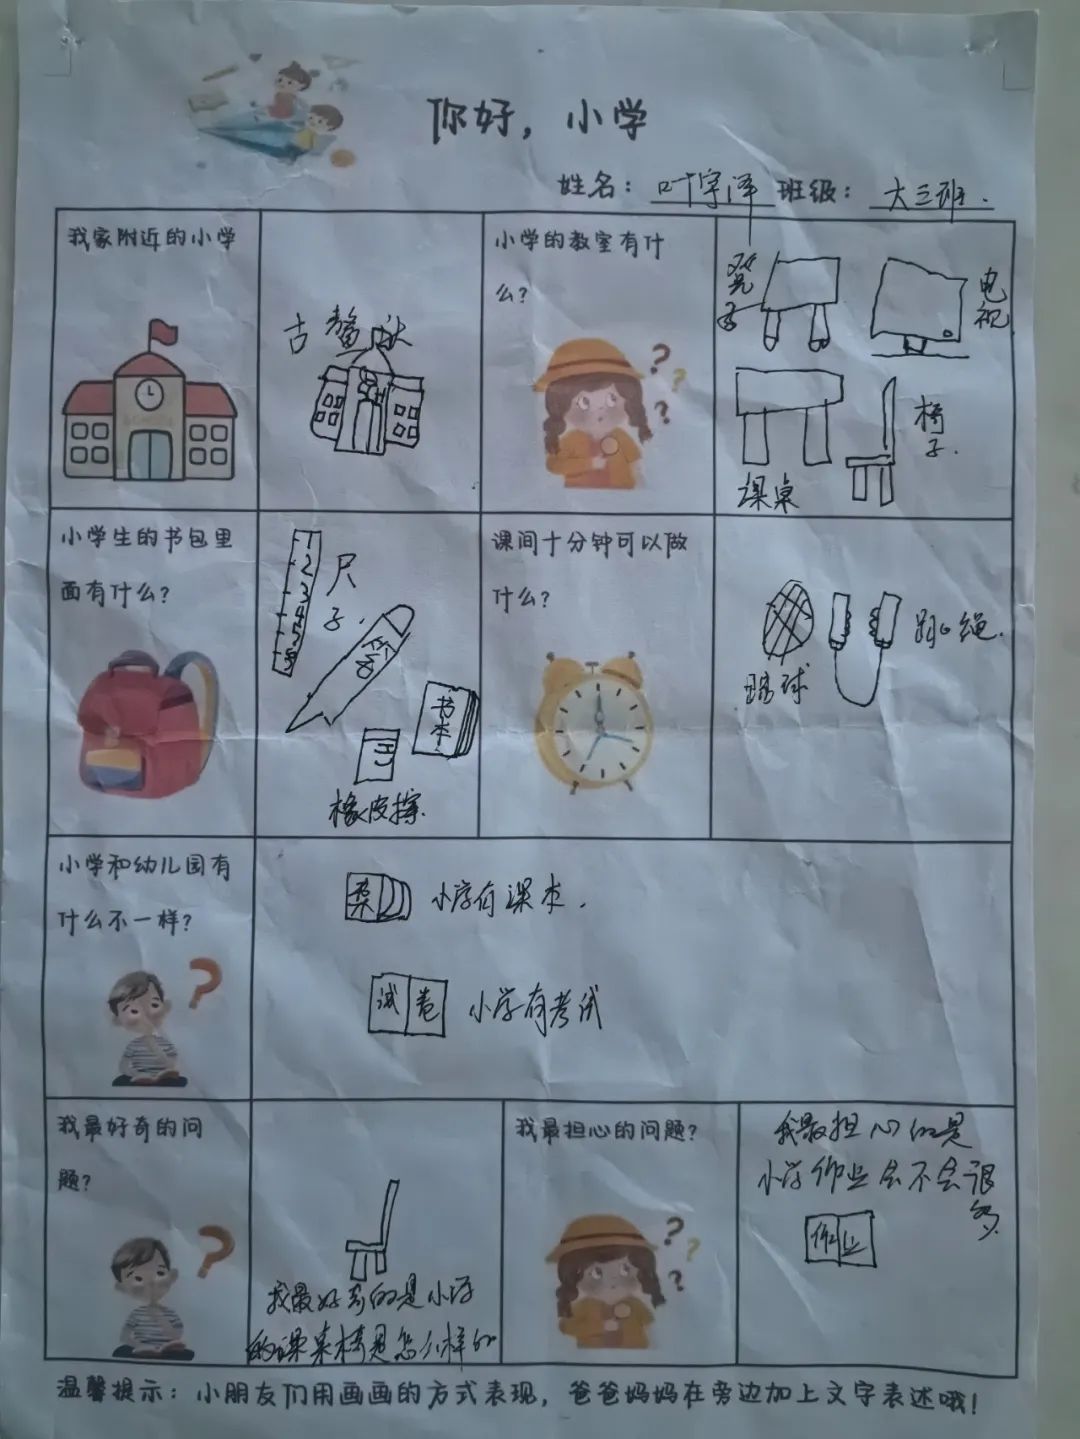 你好，小学
姓名：叶宇泽 班级：大三班.
我家附近的小学
古
小学的教室有什
么？
凳
子
电
视
课桌
椅
子.
小学生的书包里
面有什么？
1
2
3
4
5
尺
子.
笔
书
本
橡皮擦.
课间十分钟可以做
什么？
跳绳.
踢球
小学和幼儿园有
什么不一样？
小学有课本.
试卷
小学有考试
我最好奇的问
题？
我最好奇的是小学
的课桌椅是怎么样的
我最担心的问题？
我最担心的是
小学作业会不会很
多.
作业
温馨提示：小朋友们用画画的方式表现，爸爸妈妈在旁边加上文字表述哦！